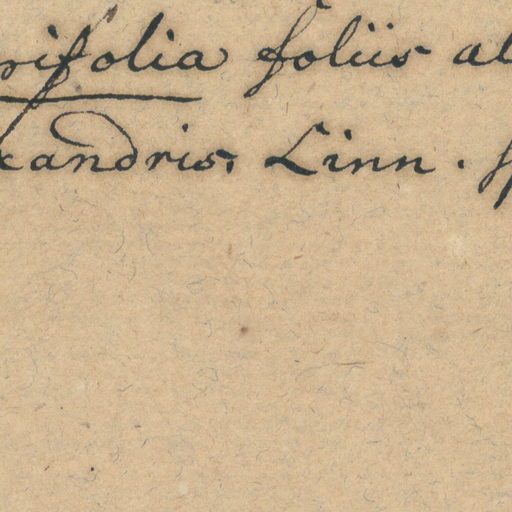 rifolia foliis al
xandris, Linn. sp